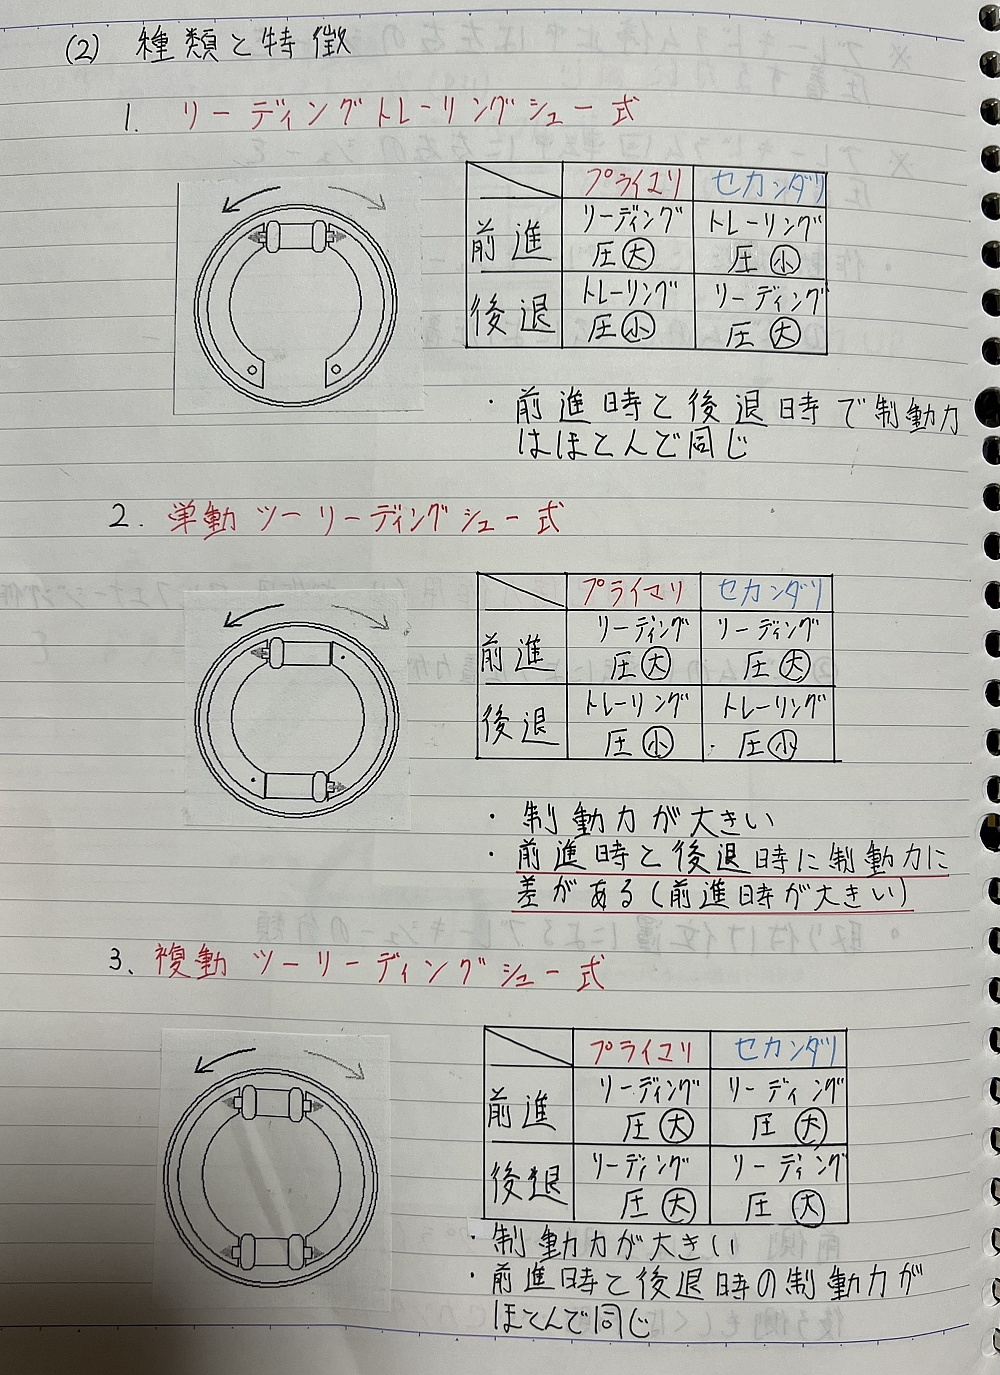 (2) 種類と特徴
1. リーディングトレーリングシュー式
プライマリ セカンダリ
前進 リーディング トレーリング
圧大 圧小
後退 トレーリング リーディング
圧小 圧大
・前進時と後退時で制動力
はほとんど同じ
2. 単動ツーリーディングシュー式
プライマリ セカンダリ
前進 リーディング リーディング
圧大 圧大
後退 トレーリング トレーリング
圧小 圧小
・制動力が大きい
・前進時と後退時に制動力に
差がある(前進時が大きい)
3、複動ツーリーディングシュー式
プライマリ セカンダリ
前進 リーディング リーディング
圧大 圧大
後退 リーディング リーディング
圧大 圧大
・制動力が大きい
・前進時と後退時の制動力が
ほとんど同じ